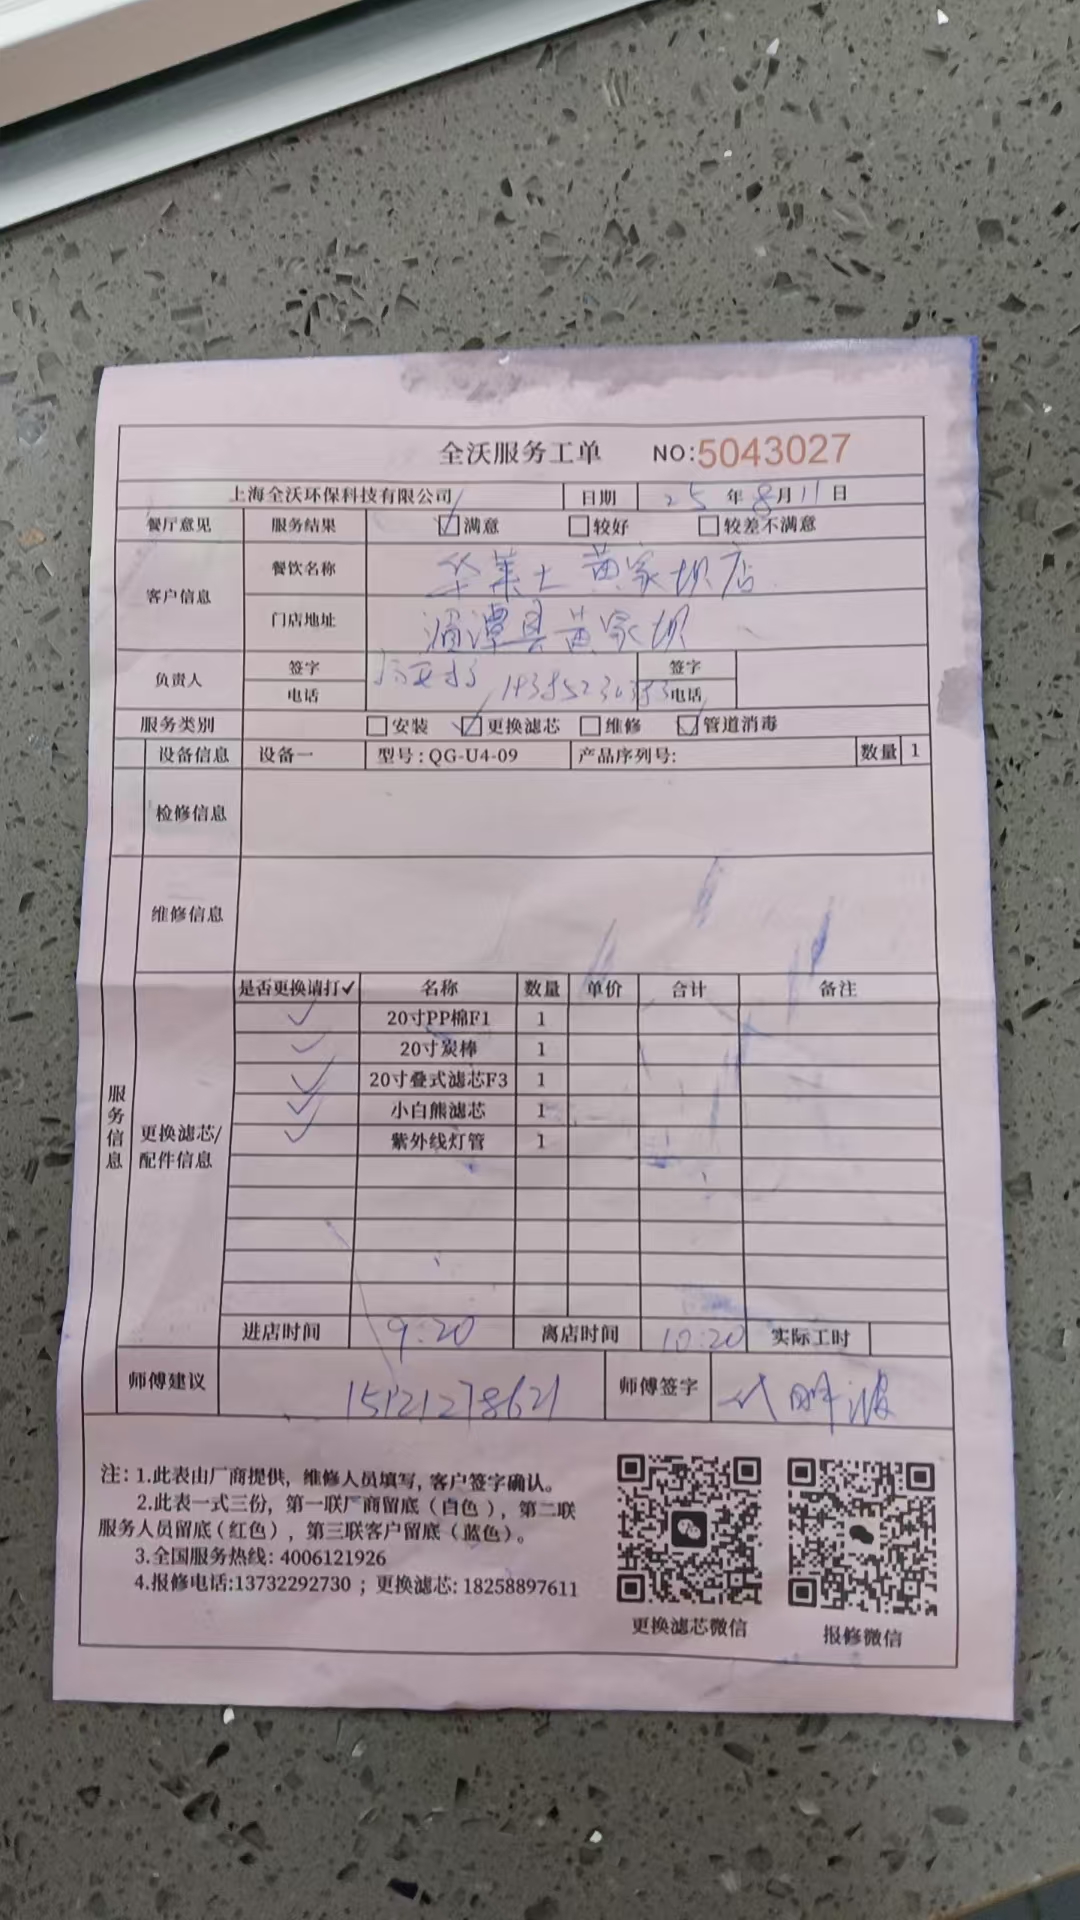 全沃服务工单 NO:5043027
上海全沃环保科技有限公司 日期 25年8月11日
餐厅意见 服务结果 满意 较好 较差不满意
客户信息 餐饮名称 华莱士黄家坝店
门店地址 湄潭县黄家坝
负责人 签字 签字
电话 电话
服务类别 安装 更换滤芯 维修 管道消毒
设备信息 设备一 型号:QG-U4-09 产品序列号: 数量 1
检修信息
维修信息
服务信息
更换滤芯/配件信息
是否更换请打✓ 名称 数量 单价 合计 备注
✓ 20寸PP棉F1 1
✓ 20寸炭棒 1
✓ 20寸叠式滤芯F3 1
✓ 小白熊滤芯 1
✓ 紫外线灯管 1
进店时间 9:20 离店时间 10:20 实际工时
师傅建议 15121278621 师傅签字
注:1.此表由厂商提供,维修人员填写,客户签字确认。
2.此表一式三份,第一联厂商留底(白色),第二联
服务人员留底(红色),第三联客户留底(蓝色)。
3.全国服务热线:4006121926
4.报修电话:13732292730;更换滤芯:18258897611
更换滤芯微信 报修微信